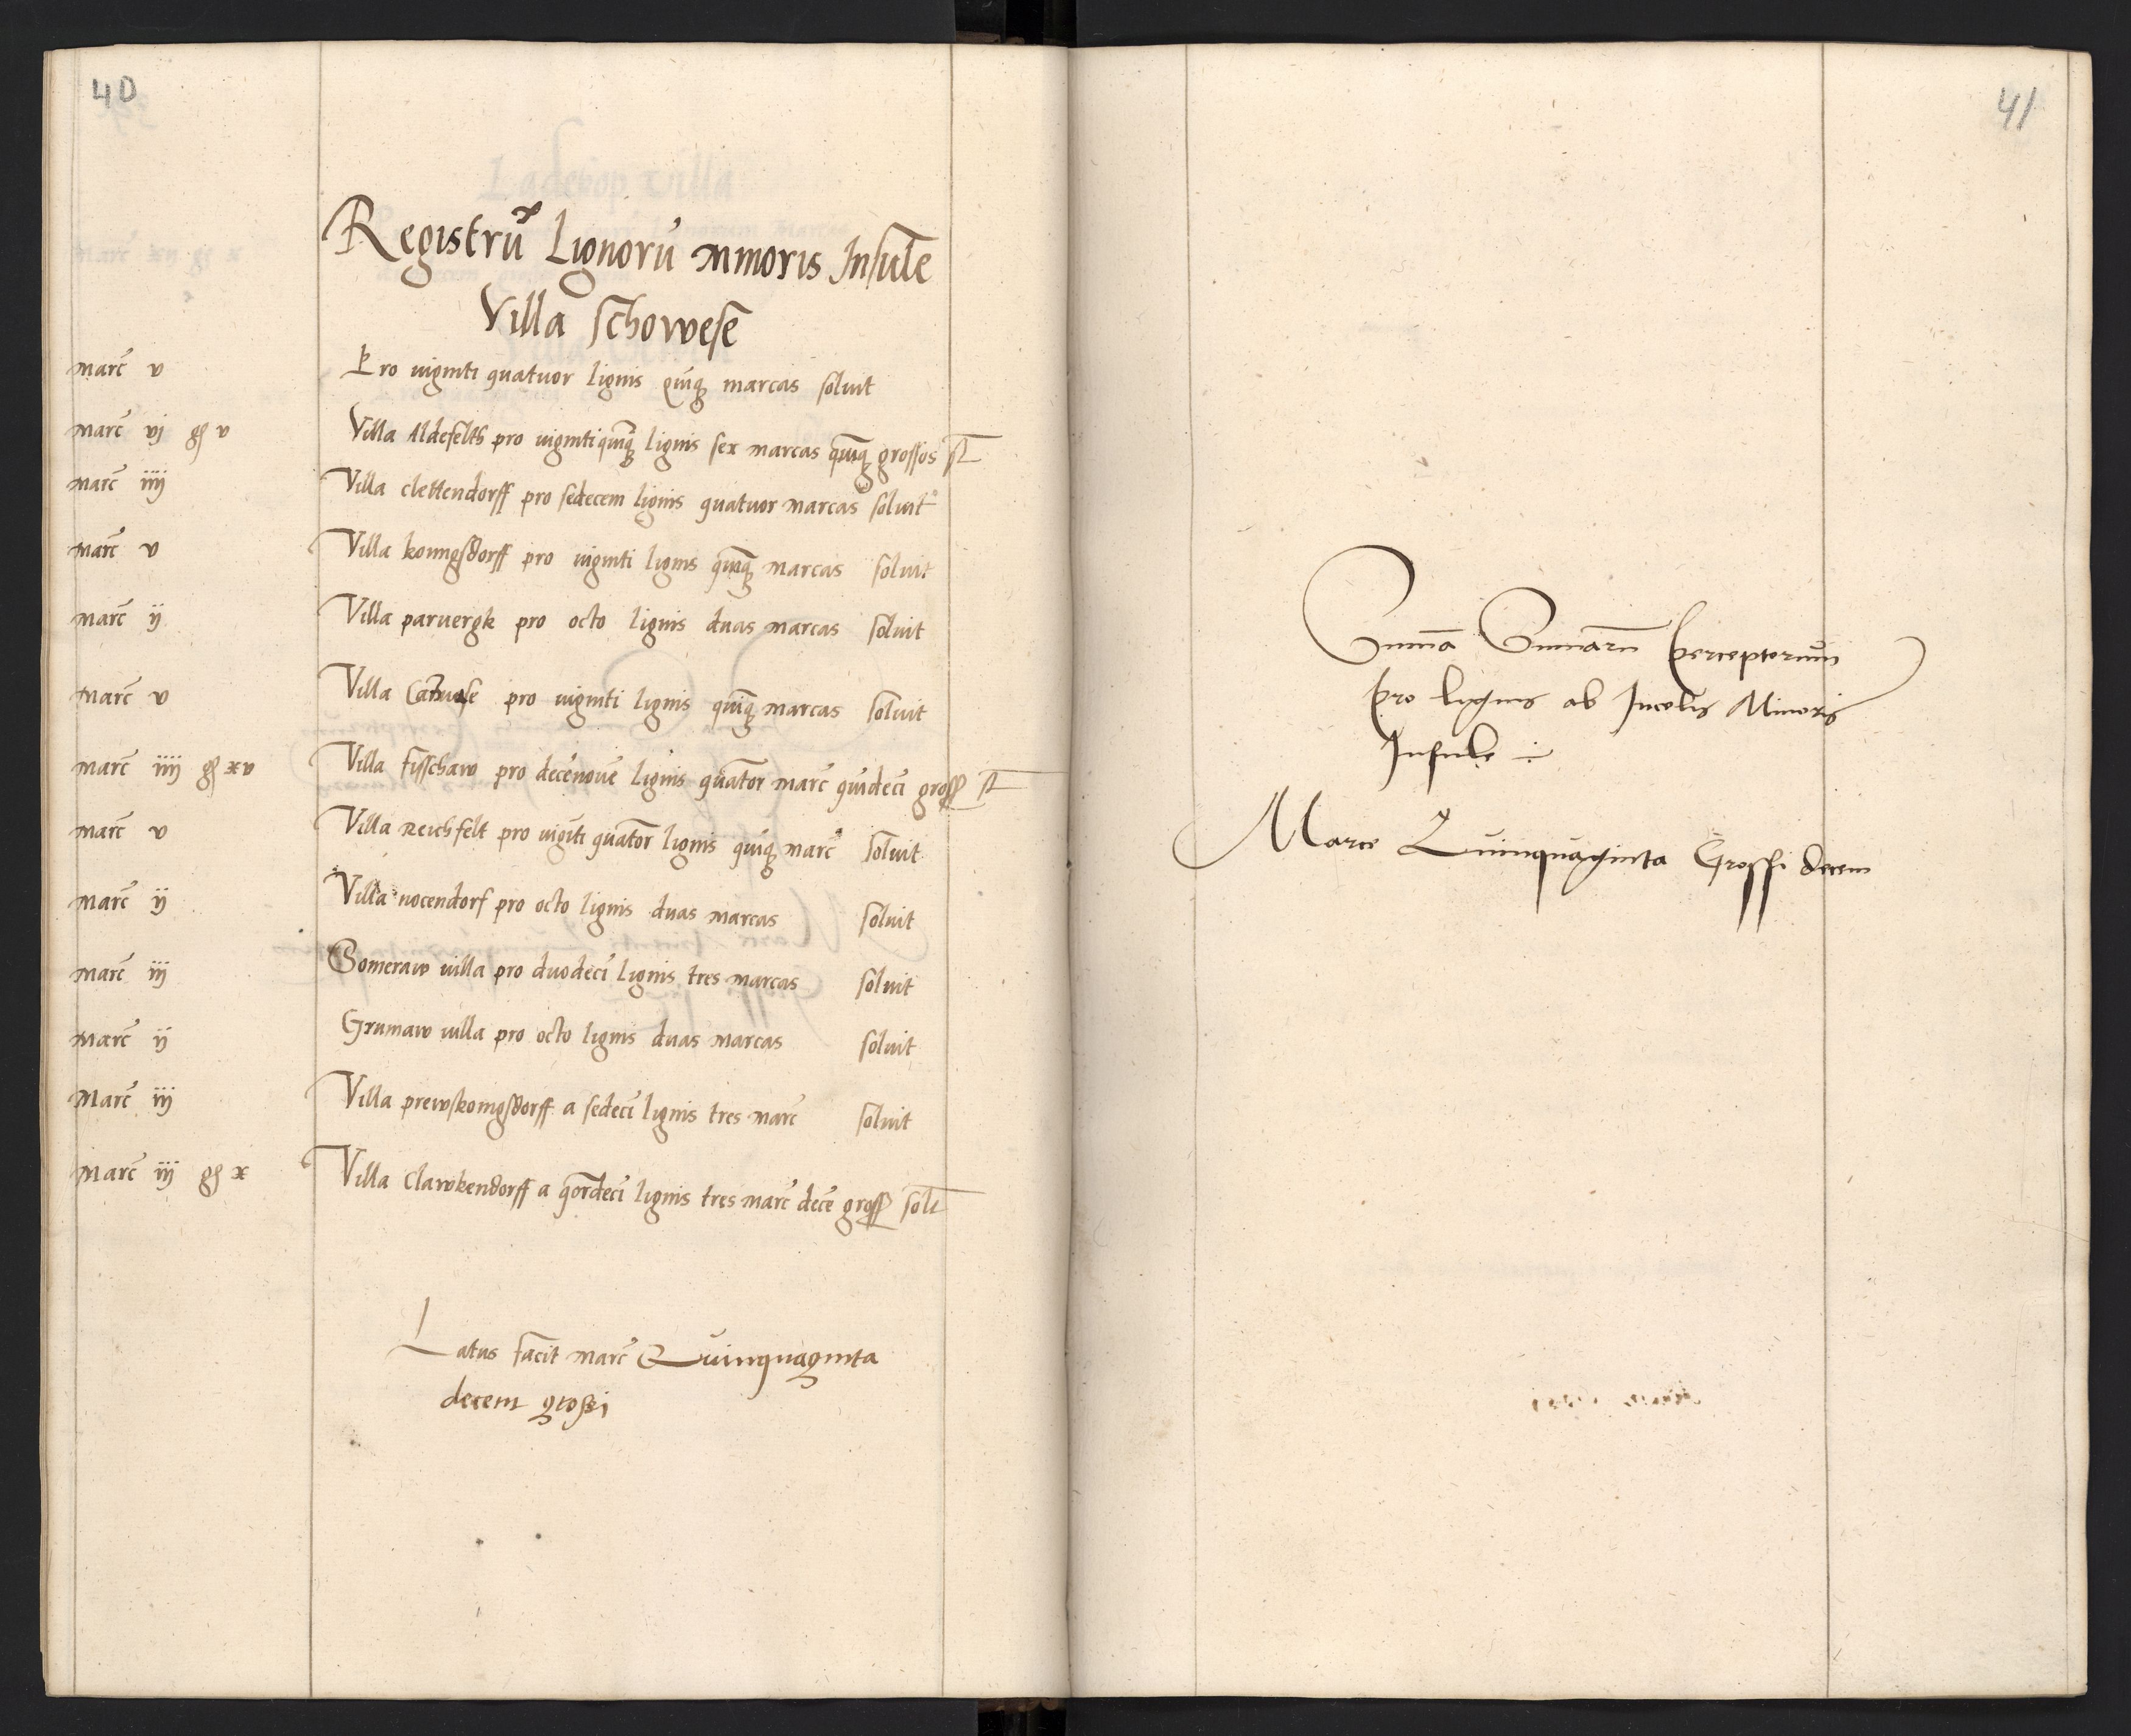 40
Registrũ Lignorũ minoris Insule
Villa Schowese
Marc̃ v Pro viginti quatuor lignis quiq̃ marcas soluit
Marc̃ vj gͬ v Villa Aldefelth pro vigintiquinq̃ lignis sex marcas quinq̃ grossos st̃
Marc̃ iiij Villa clettendorff pro sedecem lignis quatuor marcas soluit
Marc̃ v Villa konigsdorff pro viginti lignis quinq̃ marcas soluit
Marc̃ ij Villa parvergk pro octo lignis duas marcas soluit
Marc̃ v Villa pro viginti lignis quiq̃ marcas soluit
Marc̃ iiij gͬ xv Villa fisschaw pro decẽnouẽ lignis quator marc̃ quĩdecĩ gross̃ st̃
Marc̃ v Villa Reichfelt pro vigĩti quator lignis quiq̃ marc̃ soluit
Marc̃ ij Villa nocendorf pro octo lignis duas marcas soluit
Marc̃ iij Someraw villa pro duodecĩ lignis tres marcas soluit
Marc̃ ij Grunaw villa pro octo lignis duas marcas soluit
Marc̃ iij Villa prewskonigsdorff a sedecĩ lignis tres marc̃ soluit
Marc̃ iij gͬ x Villa Clawkendorff a qordecĩ lignis tres marc̃ decẽ gross̃ solt̃
Latus facit marc̃ Quinquaginta
decem grossi
41
Sum̃a Sum̃arũ perceptorum
pro lignis ab Incolis Minoris
Insule
Marce Quinquaginta Grossi decem